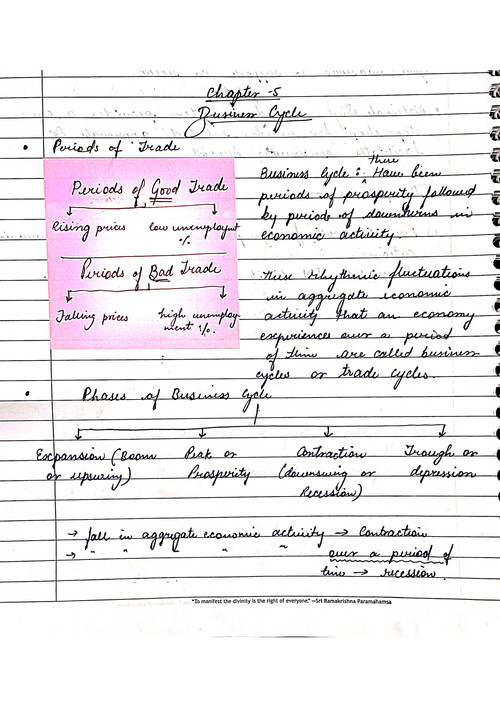 Chapter -5
Business Cycle
• Periods of Trade
Periods of Good Trade
Rising prices low unemployment %
Periods of Bad Trade
Falling prices high unemploy-
ment %.
there
Business Cycle: Have been
periods of prosperity followed
by periods of downturns in
economic activity
These rhythmic fluctuations
in aggregate economic
activity that an economy
experiences over a period
of time are called business
cycles or trade cycles.
• Phases of Business Cycle
Expansion (Boom Peak or Contraction Trough or
or upswing) Prosperity (downswing or depression
Recession)
→ fall in aggregate economic activity → Contraction
→ " " " " over a period of
time → recession.
"To manifest the divinity is the right of everyone." —Sri Ramakrishna Paramahamsa